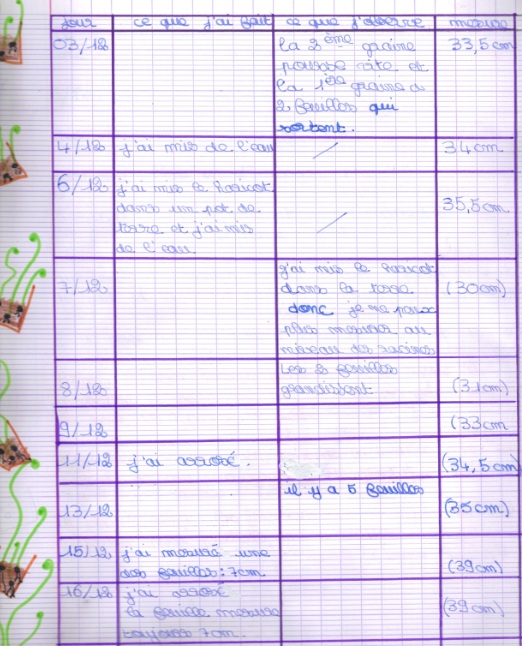 Jour ce que j'ai fait ce que j'observe mesure
03/12 la 2ème graine 33,5cm
pousse vite et
la 1ère graine a
2 feuilles qui
sortent.
4/12 j'ai mis de l'eau 34cm
6/12 j'ai mis le haricot 35,5cm
dans un pot de
terre et j'ai mis
de l'eau.
7/12 j'ai mis le haricot (30cm)
dans la terre
donc je ne peux
plus mesurer au
niveau des racines
8/12 Les 2 feuilles (31cm)
grandissent
9/12 (33cm
11/12 j'ai arrosé. (34,5cm)
13/12 il y a 5 feuilles (35cm)
15/12 j'ai mesuré une (39cm)
des feuilles : 7cm
16/12 j'ai arrosé (39cm)
la feuille mesure
toujours 7cm.